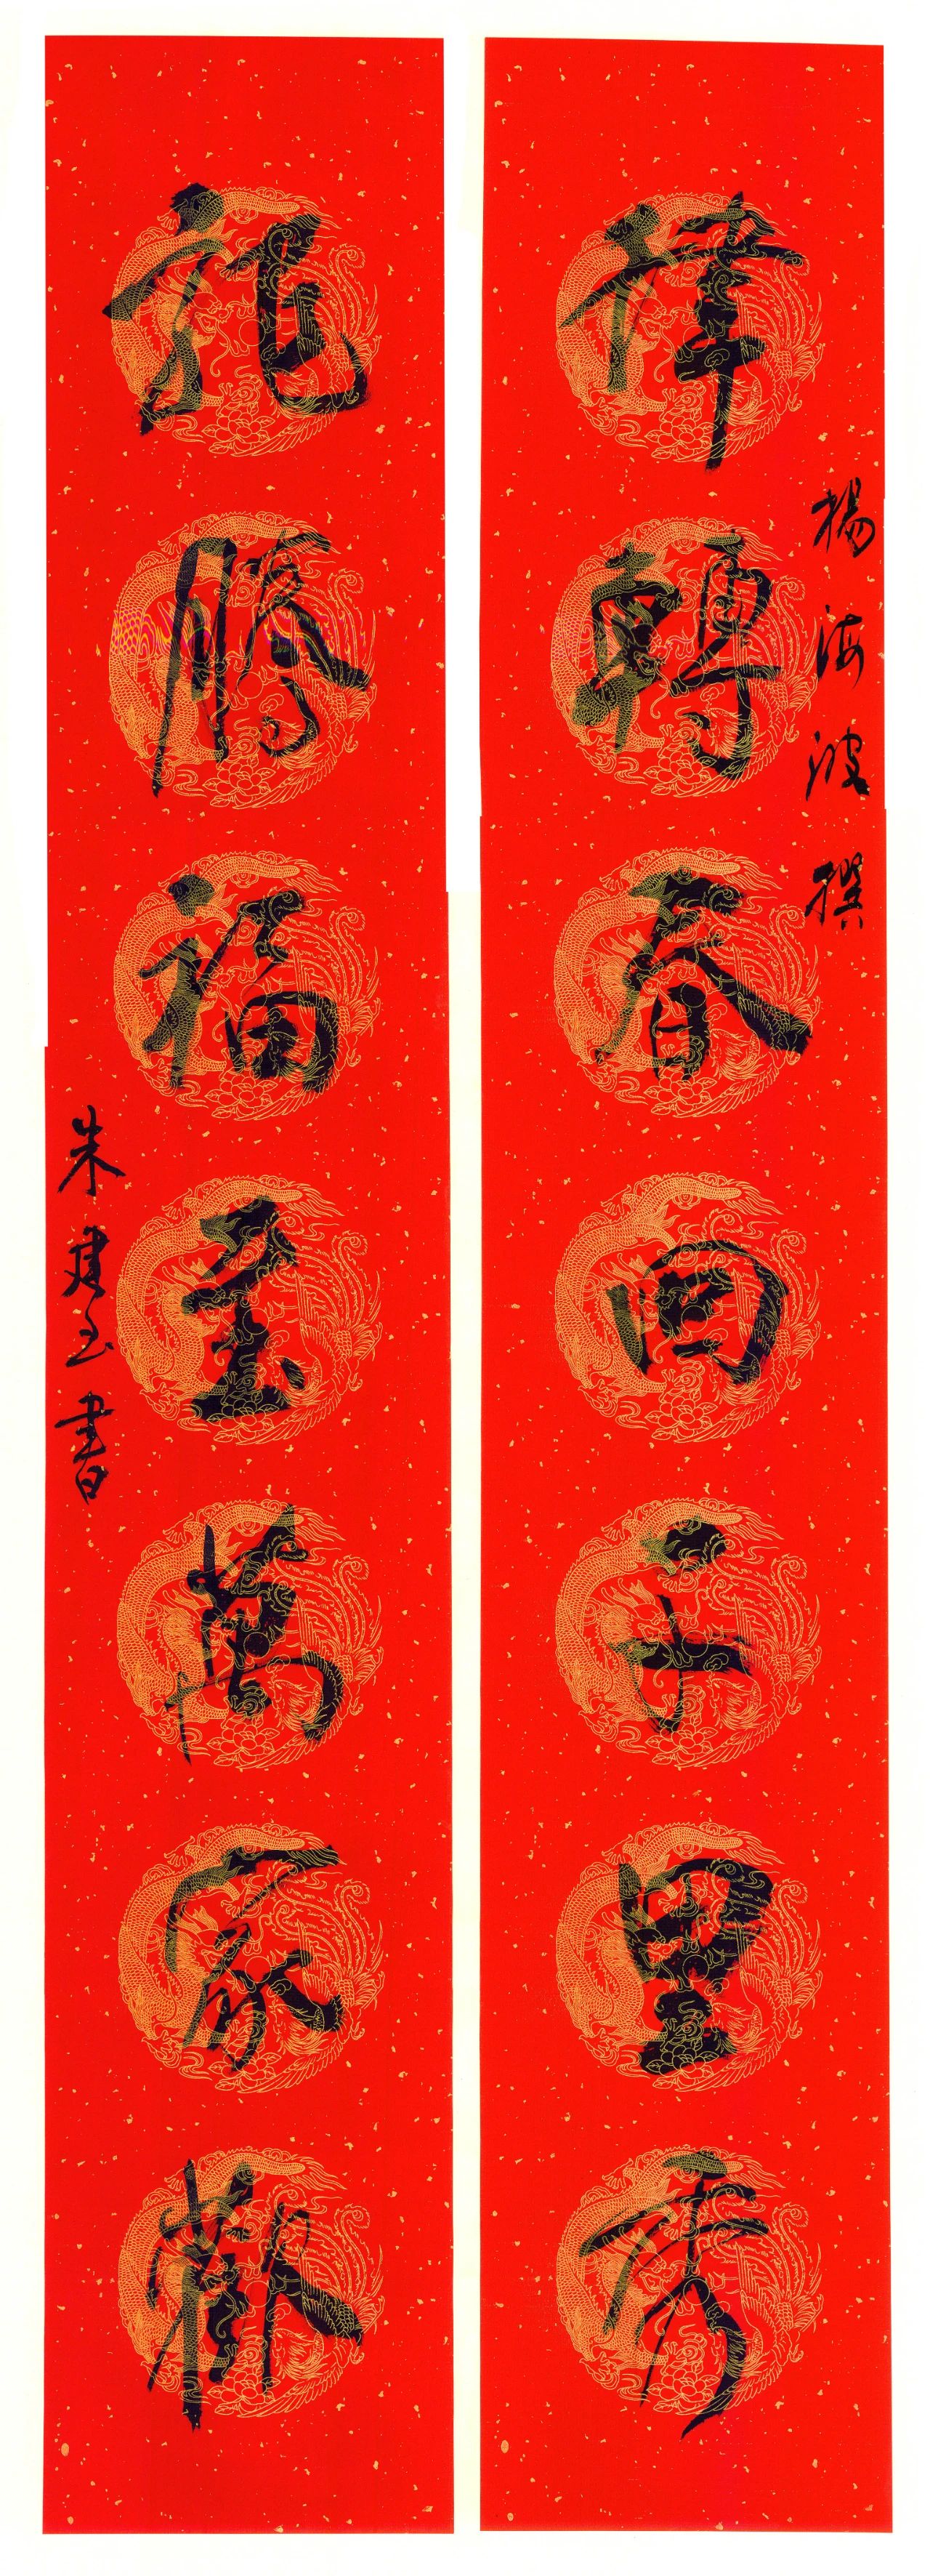 律轉春回千里秀
楊海波撰
龍騰福至萬家歡
朱建玉書